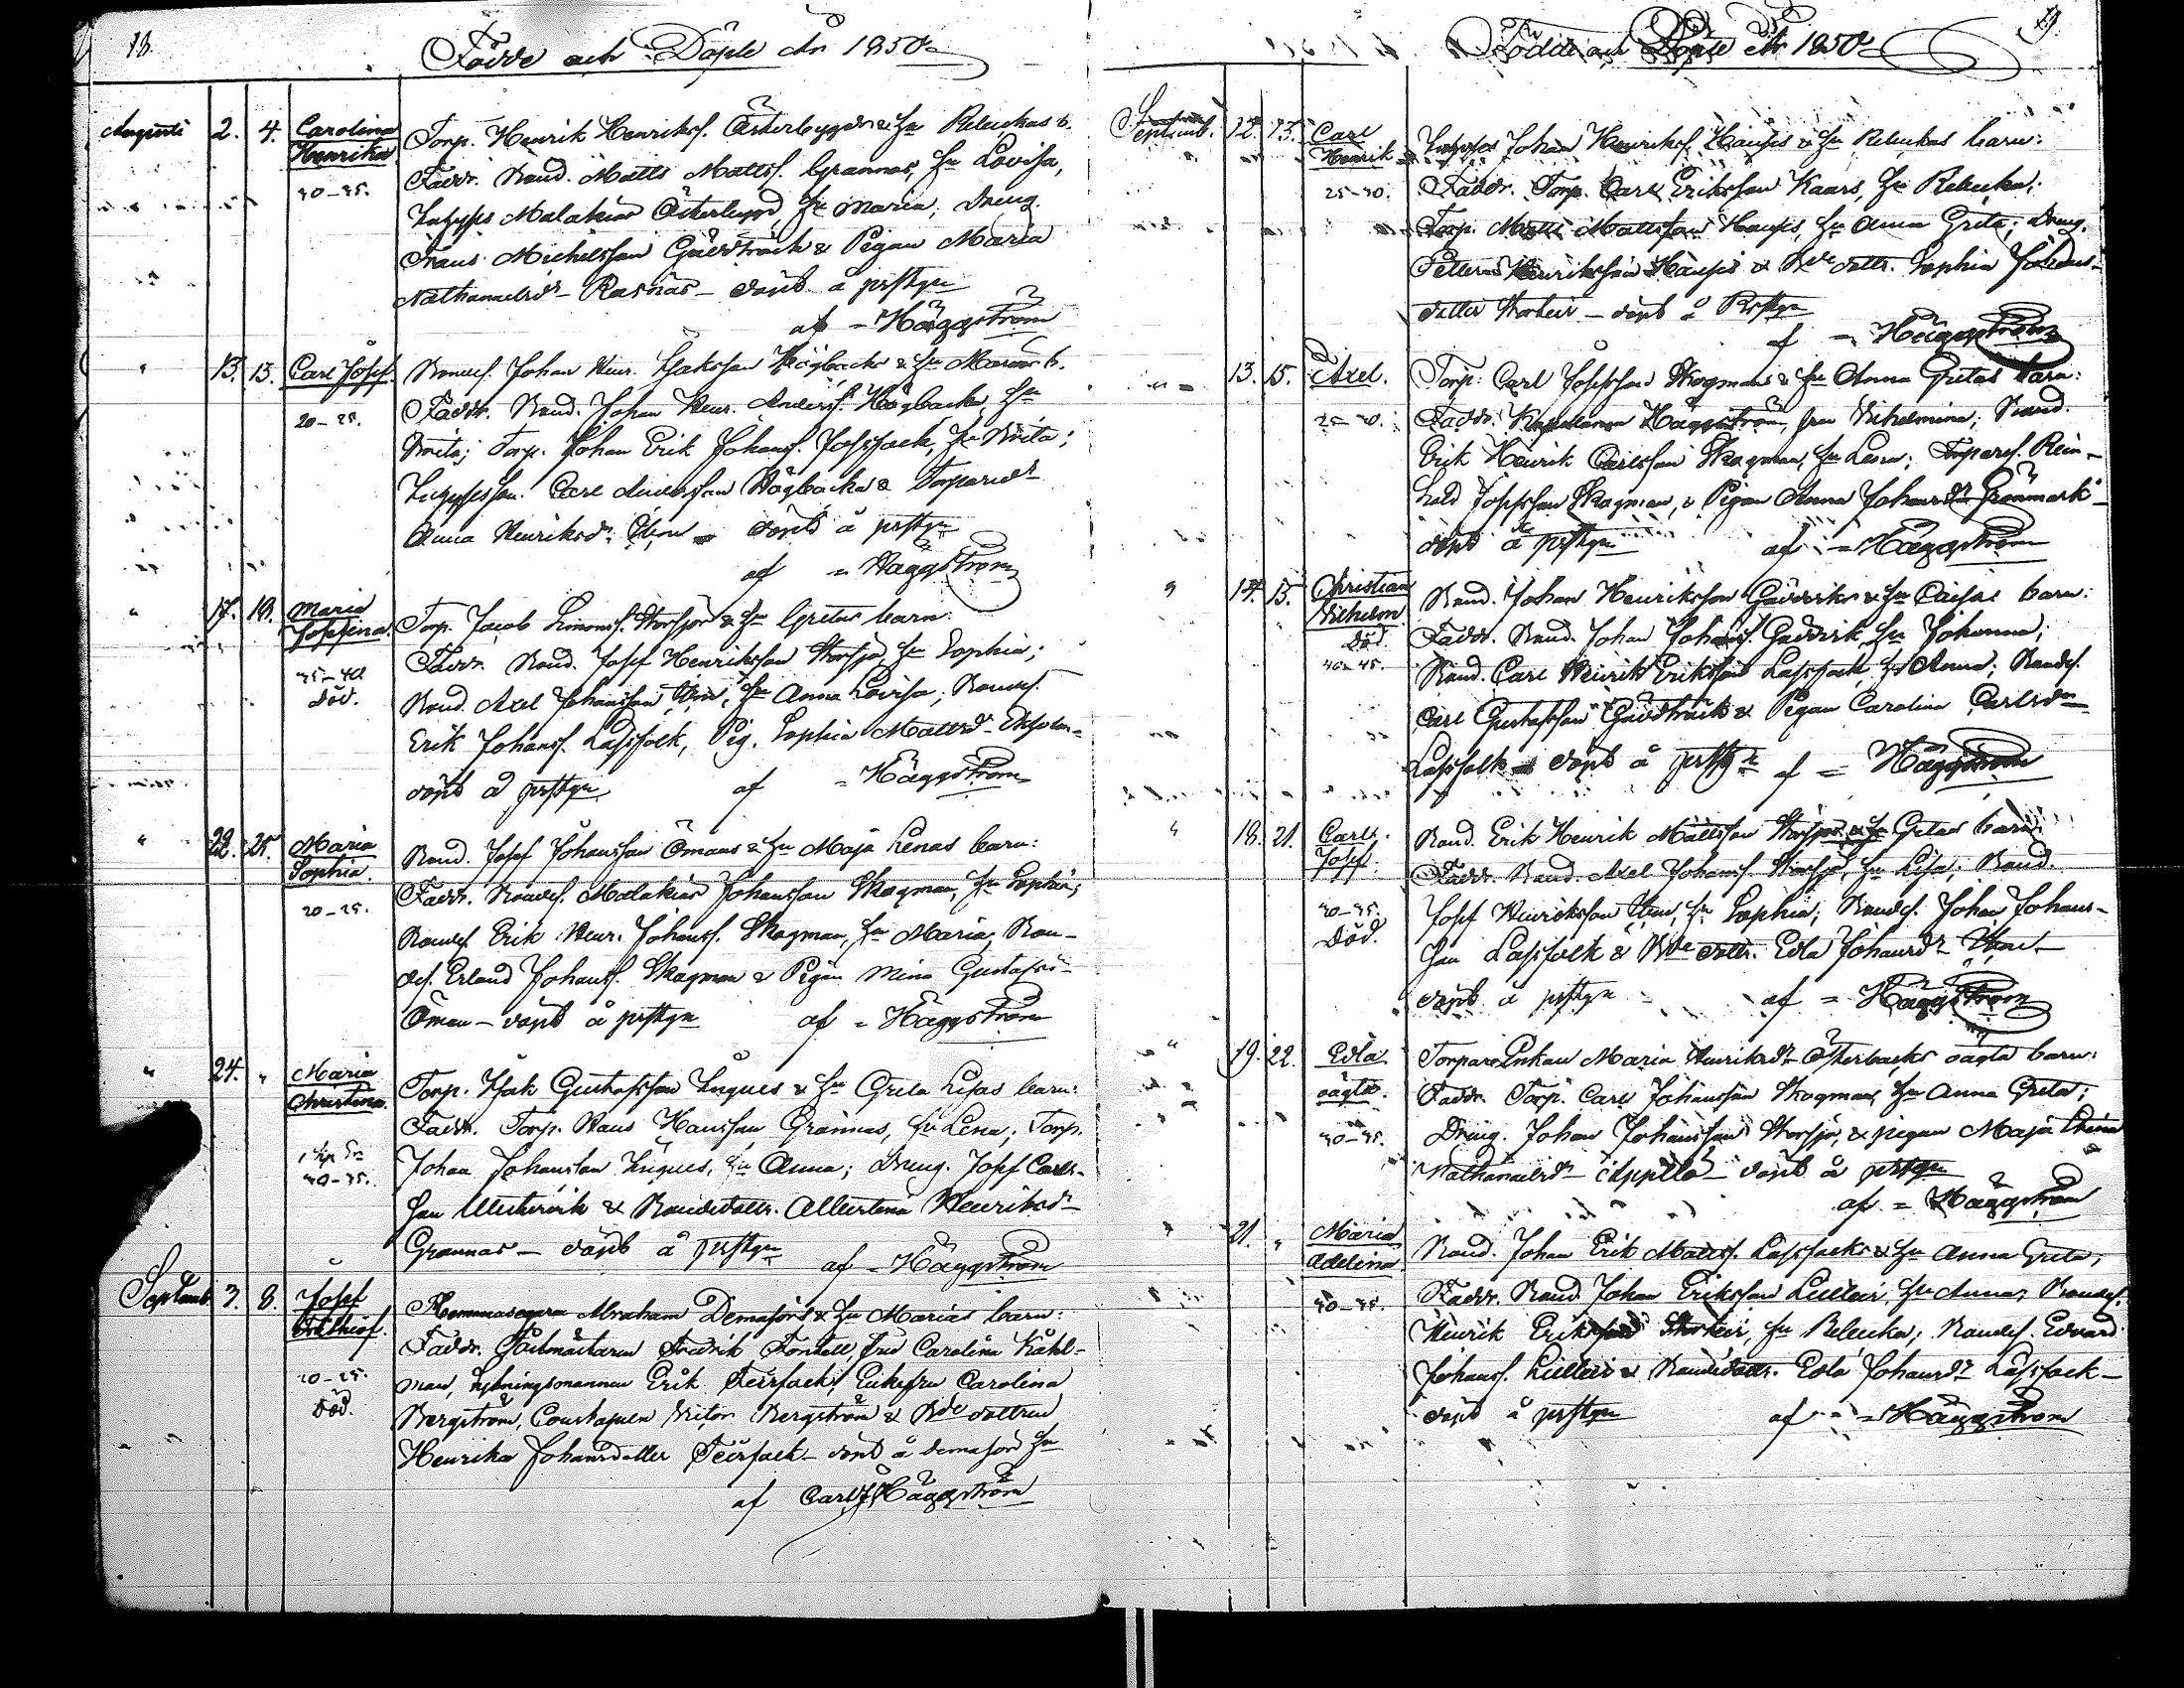 18.
Födde och Döpte År 1850.
Augusti 2. 4. Carolina Henrika 30-35.
Torp. Henrik Henrikss. Österbygds & Hu Rebeckas b.
Fadd. Bond. Matts Mattss. Grannas, Hu Lovisa,
Malakias Österbygd Hu Maria; Dreng.
Frans Michelsson Gäddträsk & Pigan Maria
Nathanaelsdr Rasnäs - döpt å prstgn
af = Häggström
" 13. 13. Carl Josef 20-25.
Bondes. Johan Henr. Isaksson Högbacka & Hu Marias b.
Fadd. Bond. Johan Henr. Anderss. Högbacka, Hu
Brita; Torp. Johan Erik Johanss. Hu Brita;
Carl Andersson Högbacka & Torparedr
Anna Henriksdr. döpt å prstgn
af = Häggström
" 17. 18. Maria Josefina 35-40. död.
Torp. Jacob Simonss. Storsjö & Hu Gretas barn:
Fadd. Bond. Josef Henriksson Storsjö, Hu Sophia;
Bond. Axel Johansson Hu Anna Lovisa; Bondes.
Erik Johanss. Lassfolk, Pig. Sophia Mattsdr
döpt å prstgn af = Häggström
" 22. 25. Maria Sophia. 20-25.
Bond. Josef Johansson Ömans & Hu Maja Lenas barn:
Fadd. Bondes. Malakias Johansson Skogman, Hu Sophia;
Bondes. Erik Henr. Johanss. Skogman, Hu Maria; Bon-
des. Erland Johanss. Skogman & Pigan Mina Gustafsdr
Öman - döpt å prstgn af = Häggström
" 24. " Maria Christina. 30-35.
Torp. Isak Gustafsson & Hu Greta Lisas barn:
Fadd. Torp. Hans Hansson Grannas, Hu Lena; Torp.
Johan Johansson Hu Anna; Dreng. Josef Carls-
son & Bondedottr. Albertina Henriksdr
Grannas - döpt å prstgn af = Häggström
Septemb. 3. 8. Josef Frithiof. 20-25. Död.
Hemmansegaren Abraham Demasörs & Hu Marias barn:
Fadd. Fredrik Fontell, fru Carolina Kåhl-
man, Erik Teirfolk, Enkefru Carolina
Bergström, Victor Bergström & Bde dottren
Henrika Johansdotter Teirfolk - döpt å Demasörs
af Carl J. Häggström
19.
Födde och Döpte År 1850.
Septemb. 12. 15. Carl Henrik 25-30.
Johan Henrikss. & Hu Rebeckas barn:
Fadd. Torp. Carl Eriksson Kaars, Hu Rebecka;
Torp. Matts Mattsson Hu Anna Greta; Dreng.
Petter Henriksson & Bde dottr. Sophia Johans-
dotter - döpt å Prstgn
af = Häggström
" 13. 15. Axel. 25-30.
Torp. Carl Josefsson Skogmans & Hu Anna Gretas barn:
Fadd. Kapellanen Häggström, fru Vilhelmina; Bond.
Erik Henrik Carlsson Skogman, Hu Lena; Torpares. Rein-
hold Josefsson Skogman, & Pigan Anna Johansdr Granmark
döpt å prstgn af = Häggström
" 14. 15. Christian Vilhelm död. 40-45.
Bond. Johan Henriksson Gäddviks & Hu Caisas barn:
Fadd. Bond. Johan Johanss. Gäddvik, Hu Johanna;
Bond. Carl Henrik Eriksson Lassfolk, Hu Anna; Bondes.
Carl Gustafsson Gäddträsk & Pigan Carolina Carlsdr
Lassfolk döpt å prstgn af = Häggström
" 18. 21. Carl Josef 30-35. Död.
Bond. Erik Henrik Mattsson Storsjös & Hu Gretas barn:
Fadd. Bond. Axel Johanss. Storsjö, Hu Lisa; Bond.
Josef Henriksson Hu Sophia; Bondes. Johan Johans-
son Lassfolk & Bde dottr. Edla Johansdr
döpt å prstgn af = Häggström
" 19. 22. Edla oägta. 30-35.
Torpare Enkan Maria Henriksdr Österbacks oägta barn:
Fadd. Torp. Carl Johansson Skogman, Hu Anna Greta;
Dreng. Johan Johansson Storsjö, & pigan Maja Lena
Nathanaelsdr - döpt å prstgn
af = Häggström
" 21. " Maria Adelina 30-35.
Bond. Johan Erik Mattss. Lassfolks & Hu Anna Greta;
Fadd. Bond Johan Eriksson Lillteir, Hu Anna; Bondes.
Henrik Eriksson Storteir, Hu Rebecka; Bondes. Edvard
Johanss. Lillteir & Bondedottr. Edla Johansdr Lassfolk -
döpt å prstgn af = Häggström